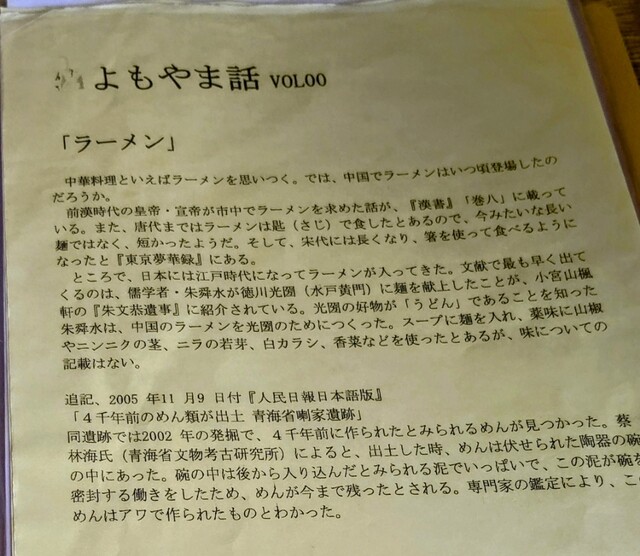 よもやま話 VOL00
「ラーメン」
中華料理といえばラーメンを思いつく。では、中国でラーメンはいつ頃登場したの
だろうか。
前漢時代の皇帝・宣帝が市中でラーメンを求めた話が、『漢書』「巻八」に載って
いる。また、唐代まではラーメンは匙（さじ）で食したとあるので、今みたいな長い
麺ではなく、短かったようだ。そして、宋代には長くなり、箸を使って食べるように
なったと『東京夢華録』にある。
ところで、日本には江戸時代になってラーメンが入ってきた。文献で最も早く出て
くるのは、儒学者・朱舜水が徳川光圀（水戸黄門）に麺を献上したことが、小宮山楓
軒の『朱文恭遺事』に紹介されている。光圀の好物が「うどん」であることを知った
朱舜水は、中国のラーメンを光圀のためにつくった。スープに麺を入れ、薬味に山椒
やニンニクの茎、ニラの若芽、白カラシ、香菜などを使ったとあるが、味についての
記載はない。
追記、2005 年11 月9 日付『人民日報日本語版』
「４千年前のめん類が出土 青海省喇家遺跡」
同遺跡では2002 年の発掘で、４千年前に作られたとみられるめんが見つかった。蔡
林海氏（青海省文物考古研究所）によると、出土した時、めんは伏せられた陶器の碗
の中にあった。碗の中は後から入り込んだとみられる泥でいっぱいで、この泥が碗を
密封する働きをしたため、めんが今まで残ったとされる。専門家の鑑定により、こ
めんはアワで作られたものとわかった。